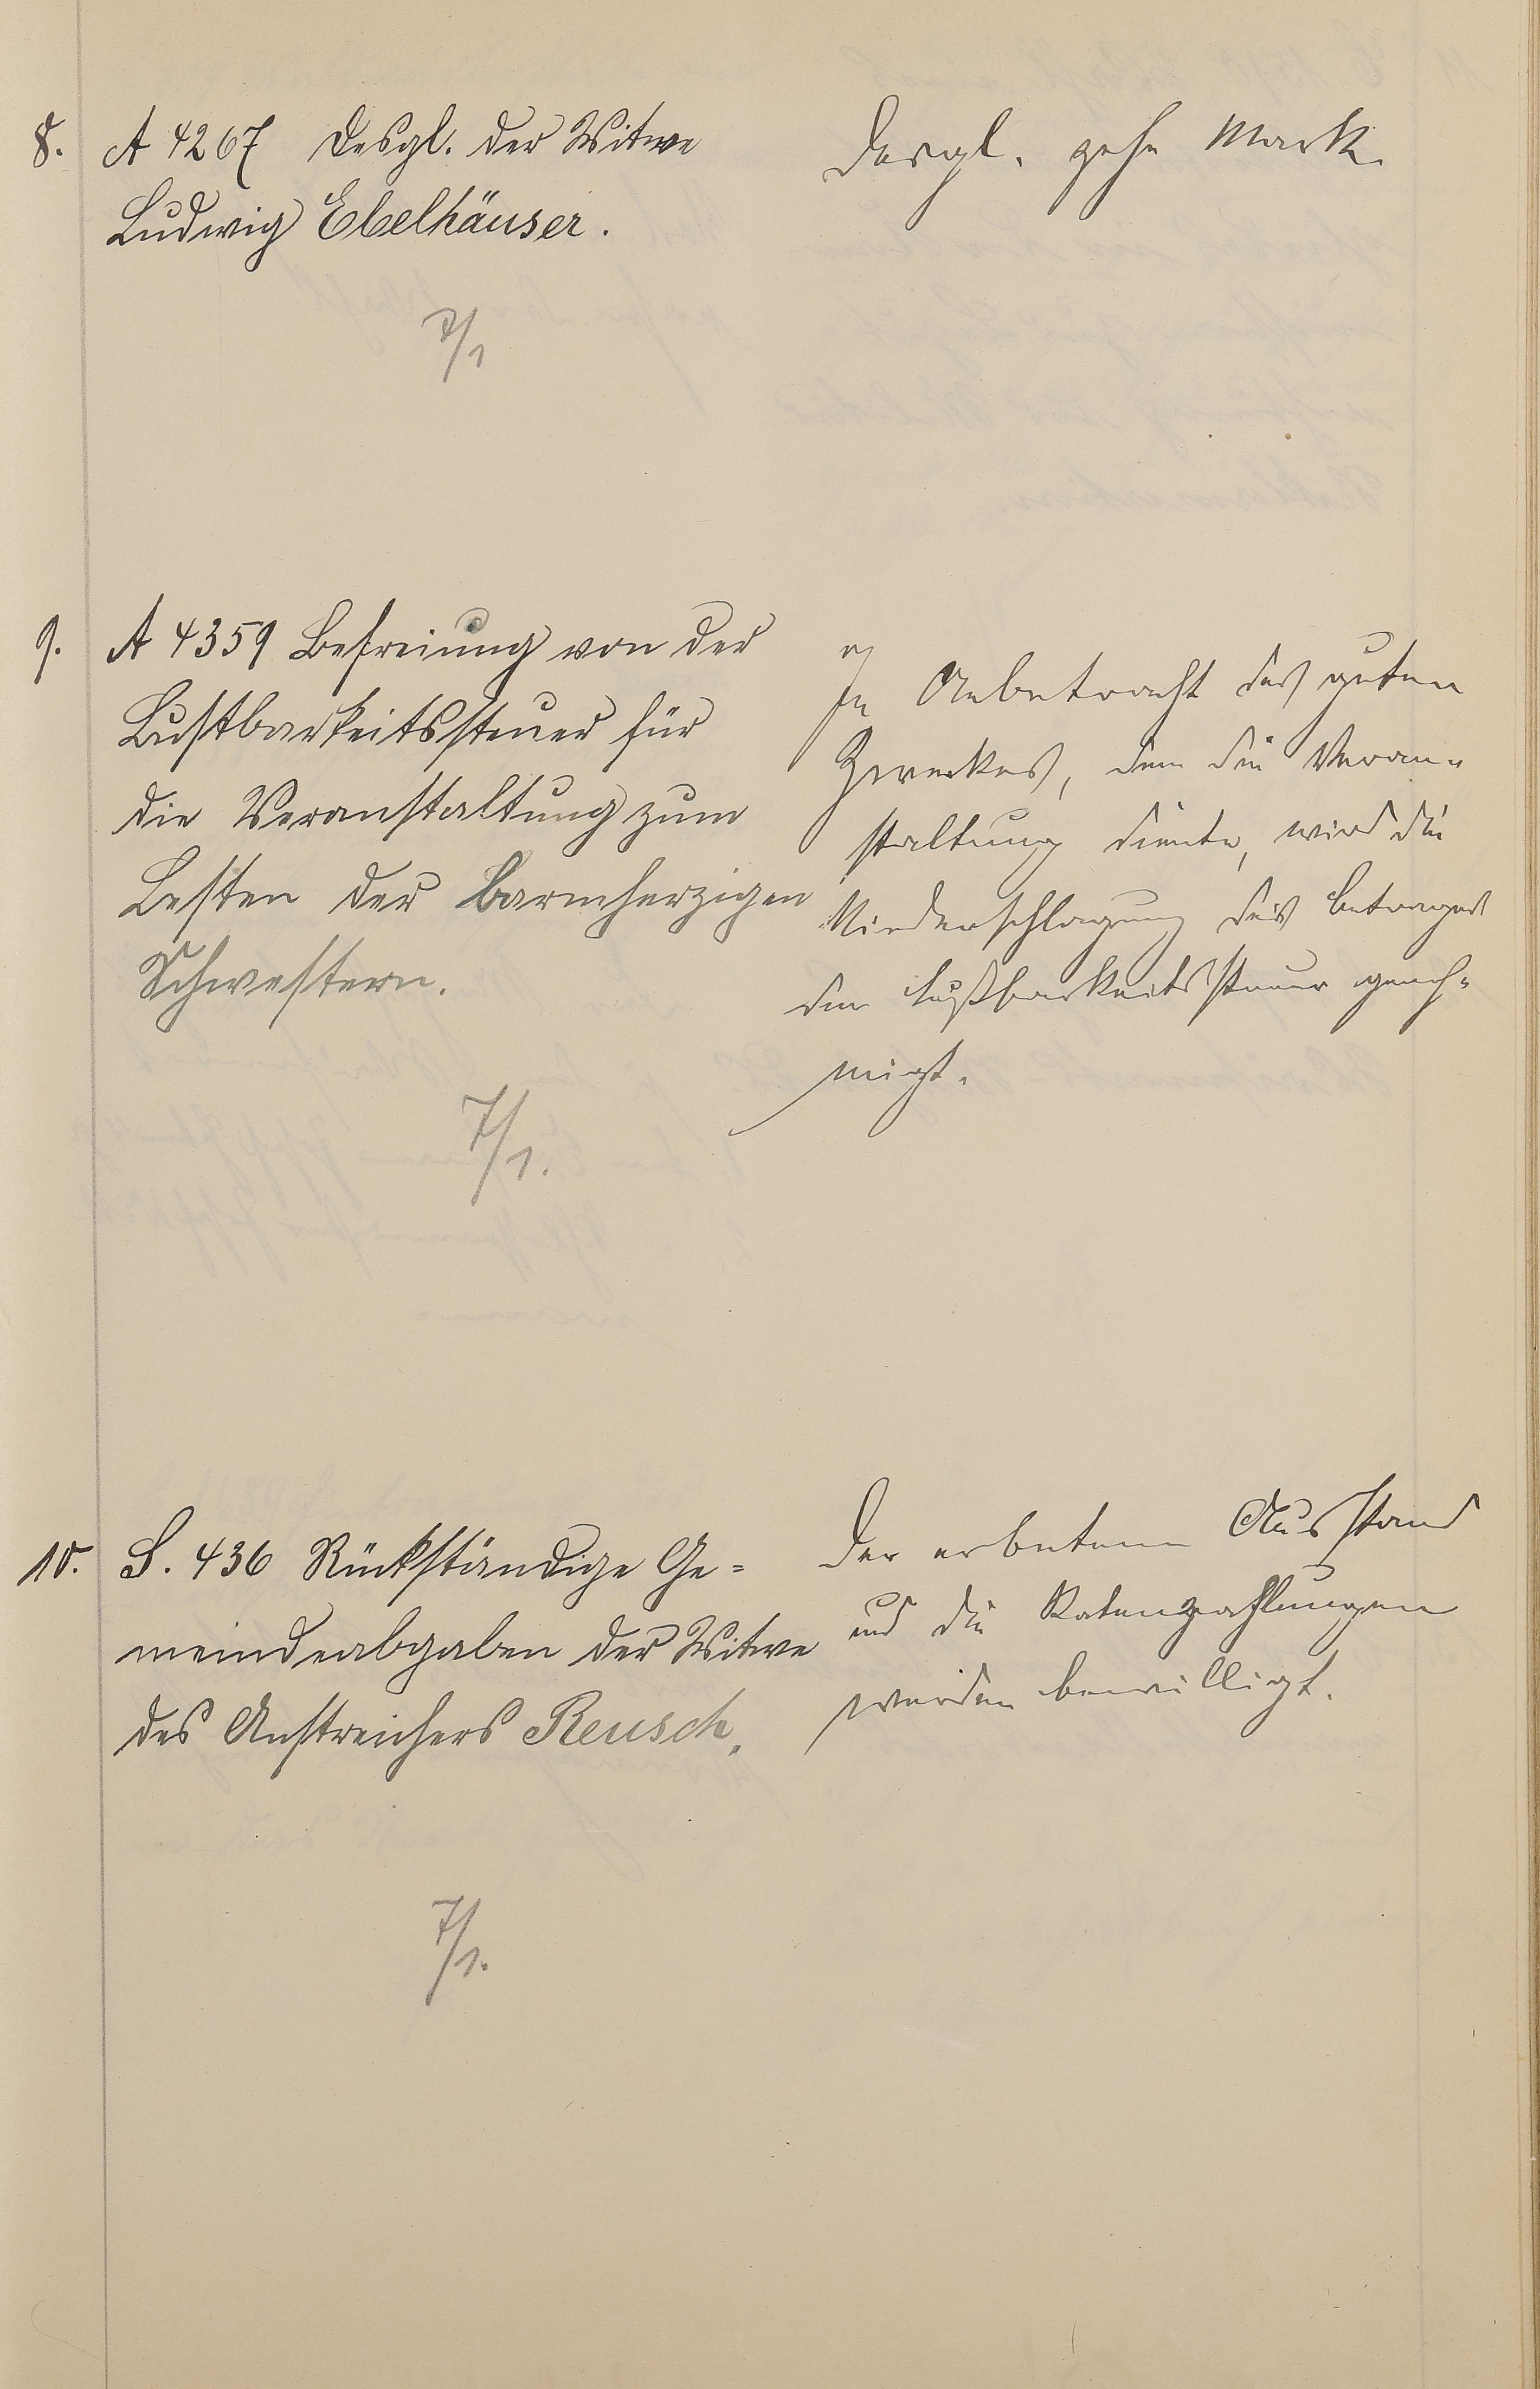 8. A 4267 Desgl. der Witwe
Ludwig Ebelhäuser.
7/1
Desgl. zehn Mark.
9. A 4359 Befreiung von der
Lustbarkeitssteuer für
die Veranstaltung zum
Besten der Barmherzigen
Schwestern.
7/1.
In Anbetracht des guten
Zweckes, dem die Veran-
staltung diente, wird die
Niederschlagung des Betrages
der Lustbarkeitssteuer geneh-
migt.
10. S. 436 Rückständige Ge=
meindeabgaben der Witwe
des Anstreichers Reusch.
7/1.
Der erbetene Ausstand
und die Ratenzahlungen
werden bewilligt.